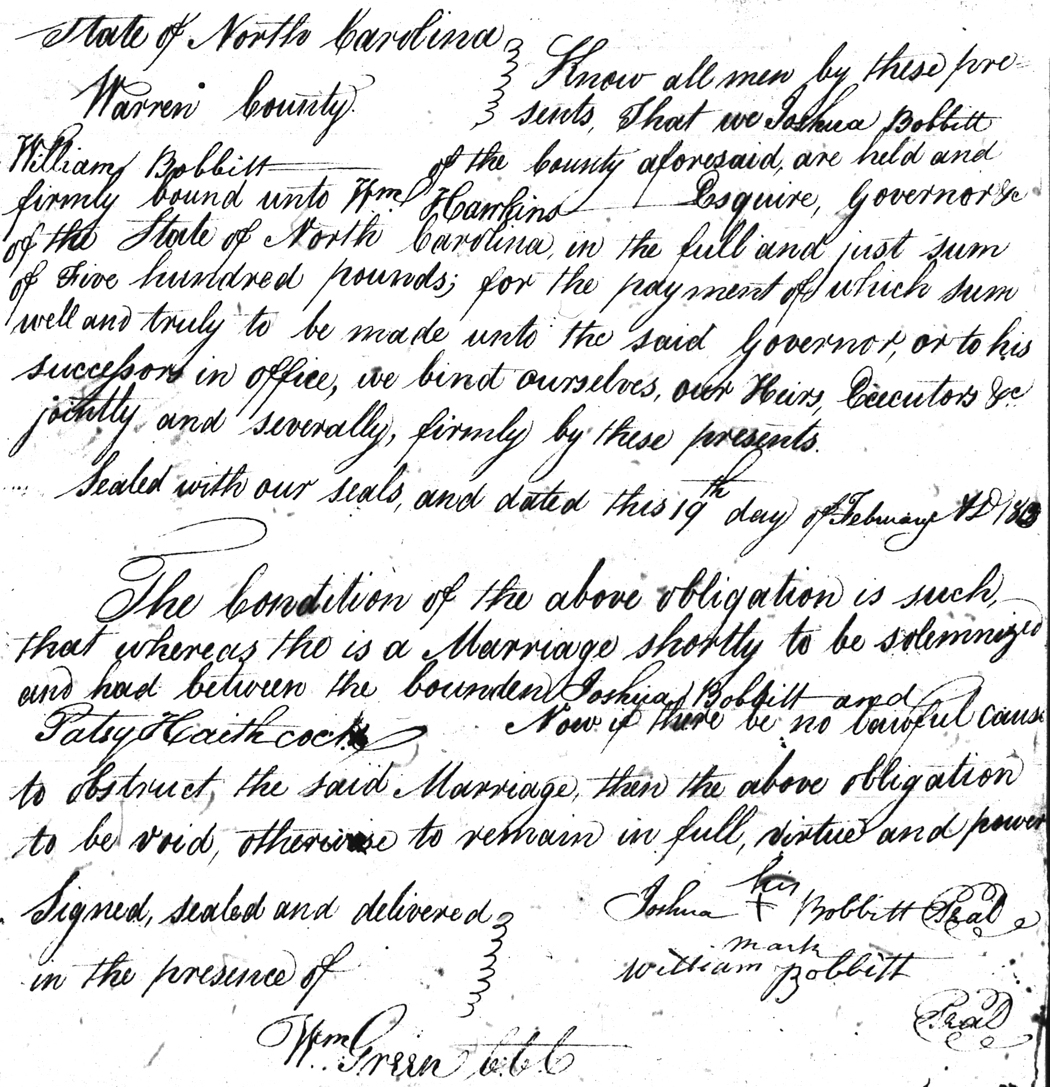 State of North Carolina
Warren County
Know all men by these pre-
sents, That we Joshua Bobbitt
William Bobbitt of the County aforesaid, are held and
firmly bound unto Wm Hawkins Esquire, Governor &c
of the State of North Carolina, in the full and just sum
of Five hundred pounds; for the payment of which sum
well and truly to be made unto the said Governor, or to his
successors in office, we bind ourselves, our Heirs, Executors &c
jointly and severally, firmly by these presents.
Sealed with our seals, and dated this 19th day of February AD 1813
The Condition of the above obligation is such,
that whereas the is a Marriage shortly to be solemnized
and had between the bounden Joshua Bobbitt and
Patsy Haethcock Now if there be no lawful cause
to obstruct the said Marriage, then the above obligation
to be void, otherwise to remain in full, virtue and power
Signed, sealed and delivered
in the presence of
his
Joshua + Bobbitt Seal
mark
William Bobbitt
Seal
Wm Green C.C.C